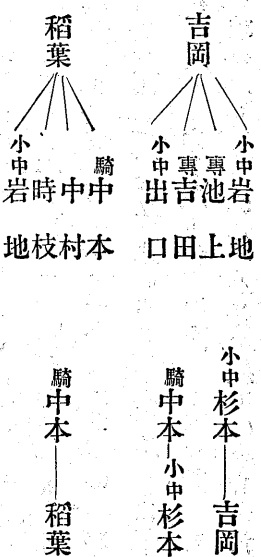 吉岡
小中 岩地
專 池上
專 吉田
小中 出口
稻葉
騎 中本
中村
時枝
小中 岩地
小中 杉本―吉岡
騎 中本―小中 杉本
騎 中本―稻葉